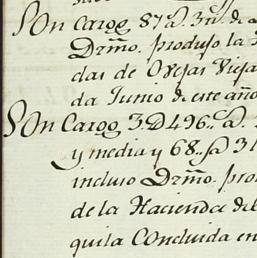 Son Carog 87 a. 3 rs. de
Dezmo. produjo la
das de Ovejas Vieja
da Junio de este año
Son Carog 3.D496.. a.
y media y 68.. a 31
incluso Dezmo. pro
de la Hacienda del
quila Concluida en